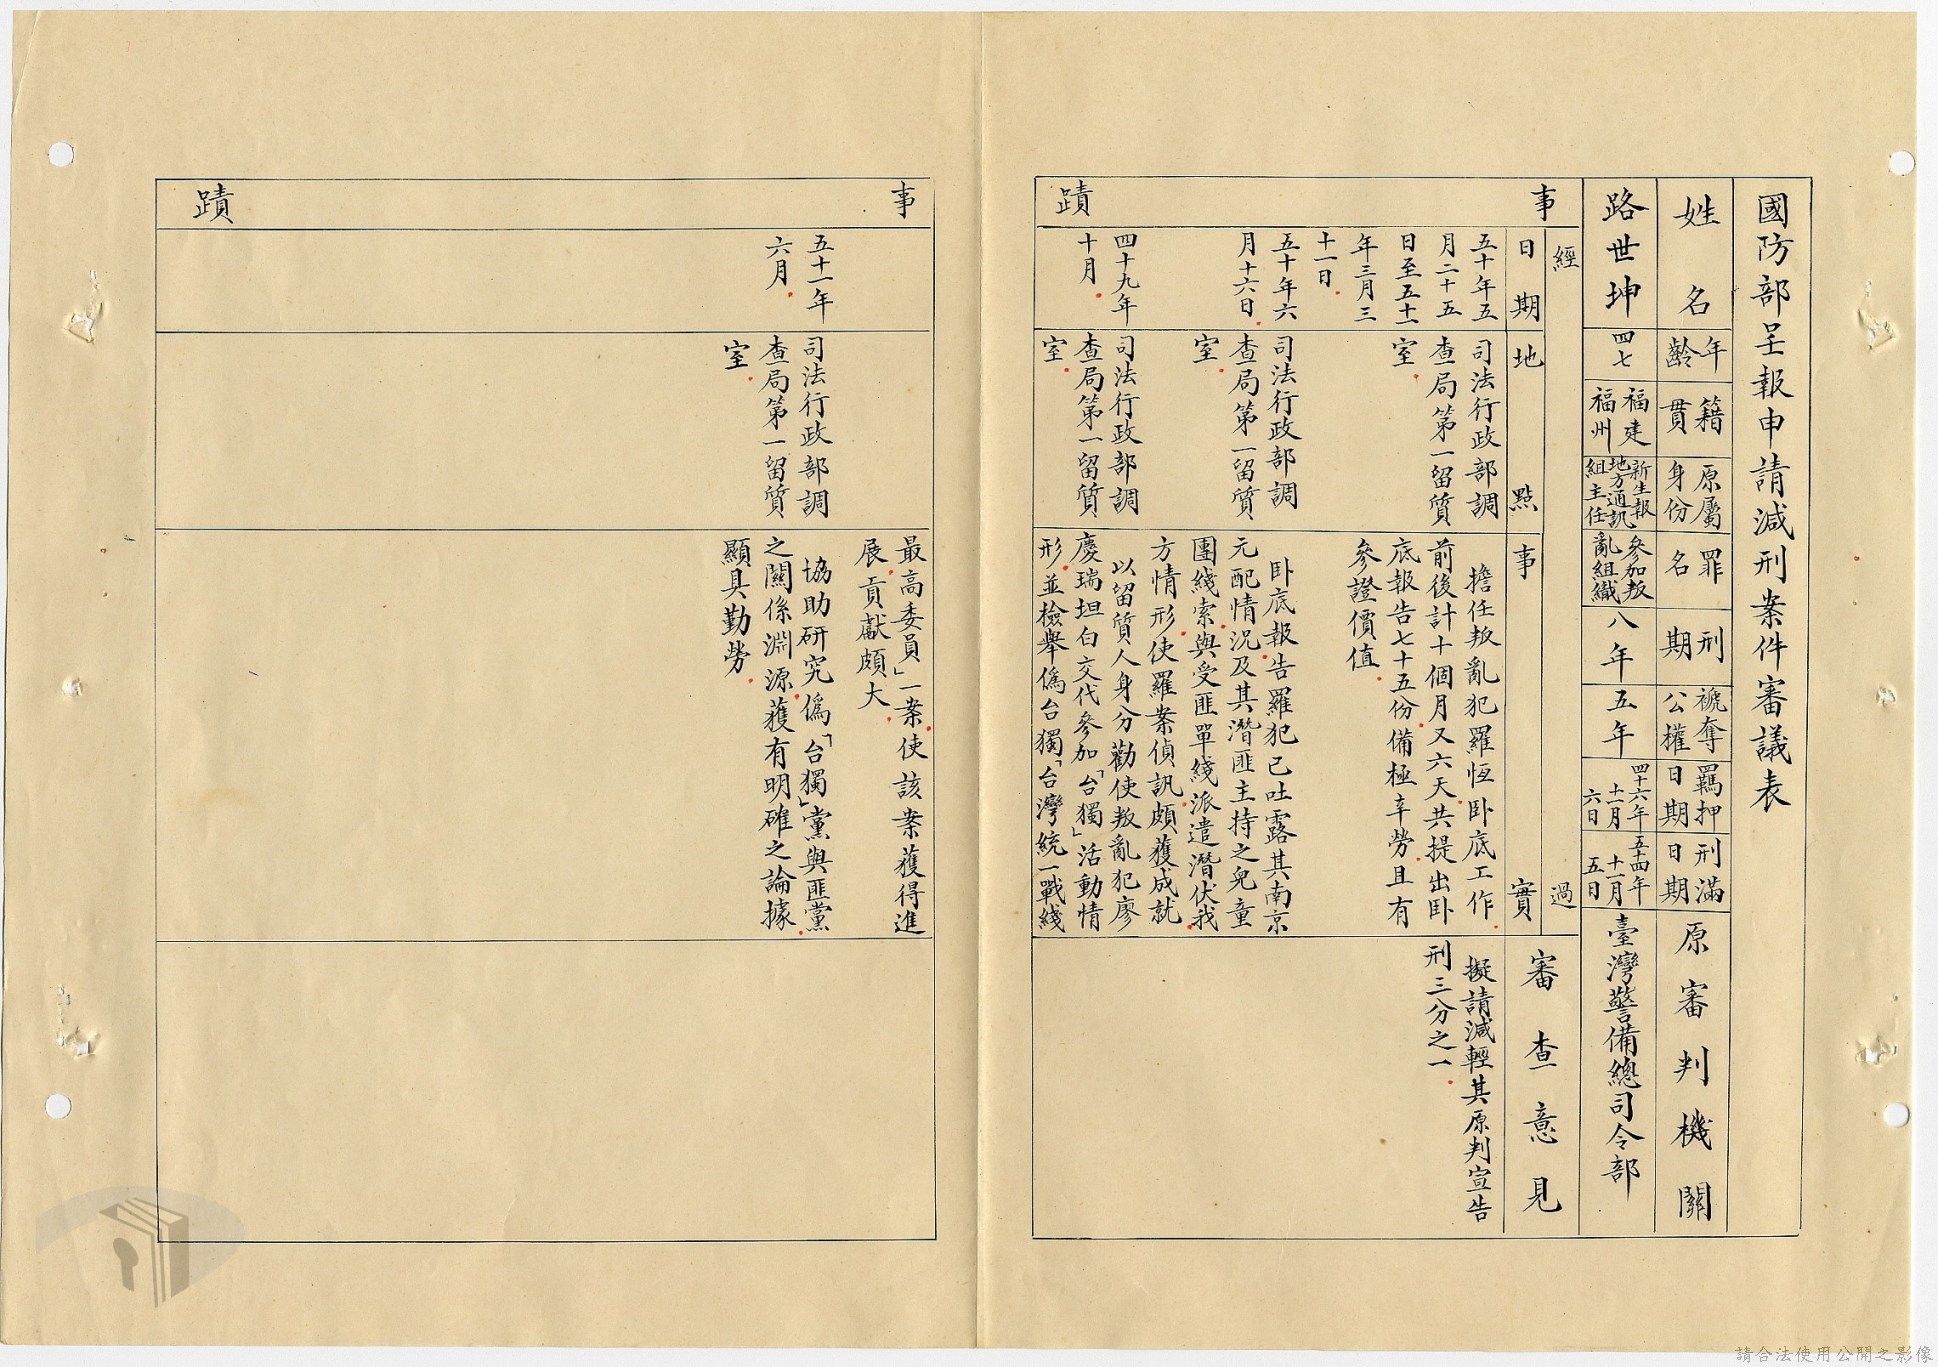 國防部呈報申請減刑案件審議表
姓名
年齡
籍貫
原屬身份
罪名
刑期
褫奪公權
羈押日期
刑滿日期
原審判機關
路世坤
四七
福建
福州
新生報
地方通訊
組主任
參加叛
亂組織
八年
五年
四十六年
十一月
六日
五十四年
十一月
五日
臺灣警備總司令部
事蹟
經過
日期
地點
事實
審查意見
五十年五
月二十五
日至五十一
年三月三
十一日.
司法行政部調
查局第一留質
室.
擔任叛亂犯羅恆卧底工作.
前後計十個月又六天.共提出卧
底報告七十五份.備極辛勞.且有
參證價值.
擬請減輕其原判宣告
刑三分之一.
五十年六
月十六日.
司法行政部調
查局第一留質
室.
卧底報告羅犯已吐露其南京
元配情況.及其潛匪主持之兒童
團綫索.與受匪單綫派遣潛伏我
方情形.使羅案偵訊.頗獲成就.
四十九年
十月.
司法行政部調
查局第一留質
室.
以留質人身分勸使叛亂犯廖
慶瑞坦白交代參加「台獨」活動情
形.並檢舉偽台獨「台灣統一戰綫
事蹟
最高委員」一案.使該案獲得進
展.貢獻頗大.
五十一年
六月.
司法行政部調
查局第一留質
室.
協助研究偽「台獨」黨與匪黨
之關係淵源.獲有明確之論據.
顯具勤勞.
請合法使用公開之影像